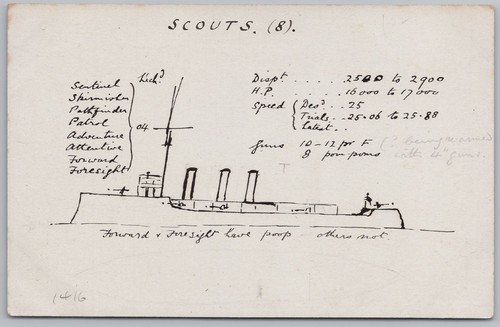 SCOUTS. (8).
Sentinel
Skirmisher
Pathfinder
Patrol
Adventure
Attentive
Forward
Foresight
Lich'd
04
Displt. . . . . . 2500 to 2900
H.P. . . . . . 16000 to 17000
Speed { Desd. . . 25
Trials . . 25.06 to 25.88
Latest . .
Guns 10 - 12 pr F
8 pom poms
being rearmed
with 4" guns.
T
Forward & Foresight have poop others not.
1416